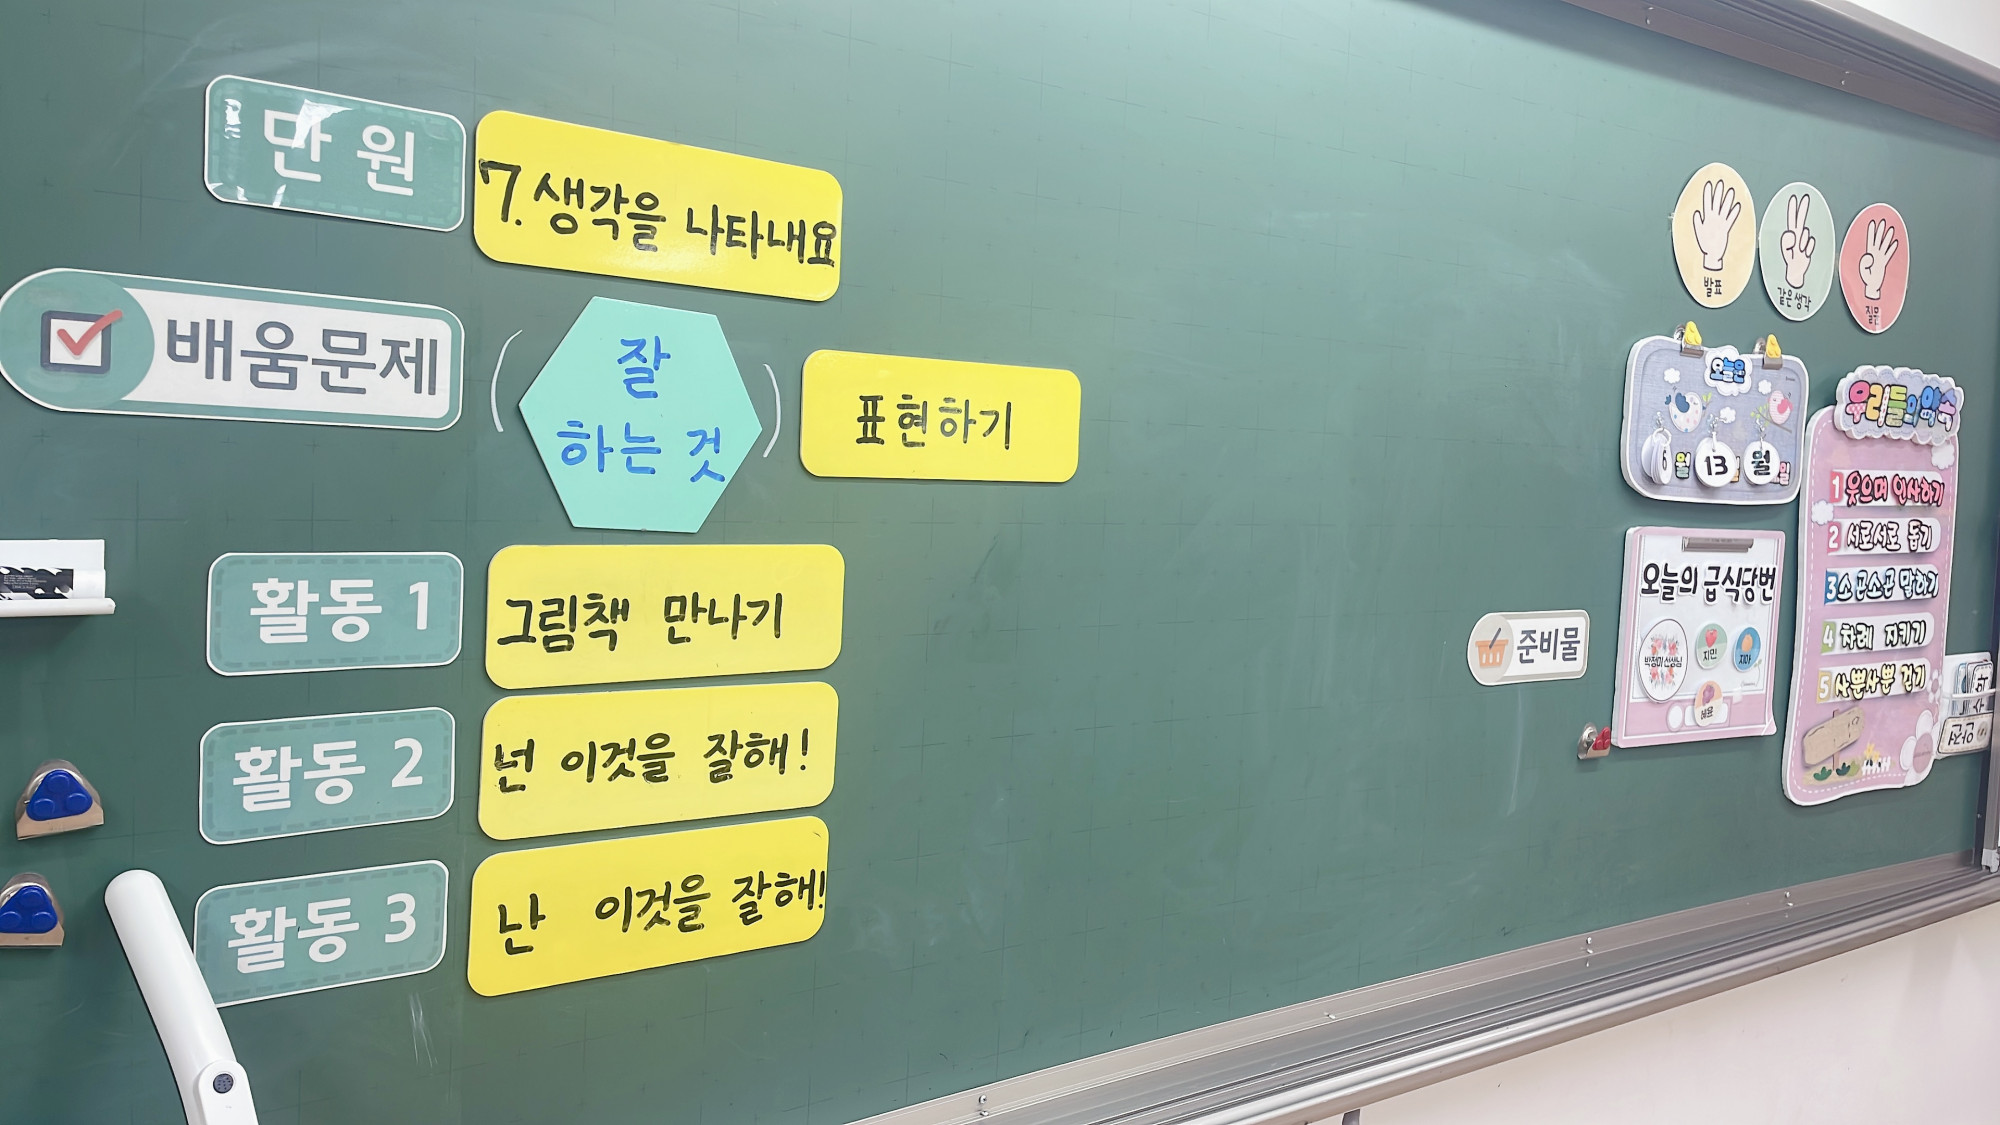 단 원
7. 생각을 나타내요
배움문제
( 잘
하는 것 )
표현하기
활동 1
그림책 만나기
활동 2
넌 이것을 잘해!
활동 3
난 이것을 잘해!
발표
같은 생각
질문
오늘은
6 월 13 일 월
우리들의 약속
1 웃으며 인사하기
2 서로서로 돕기
3 소곤소곤 말하기
4 차례 지키기
5 사뿐사뿐 걷기
오늘의 급식당번
지민
준비물